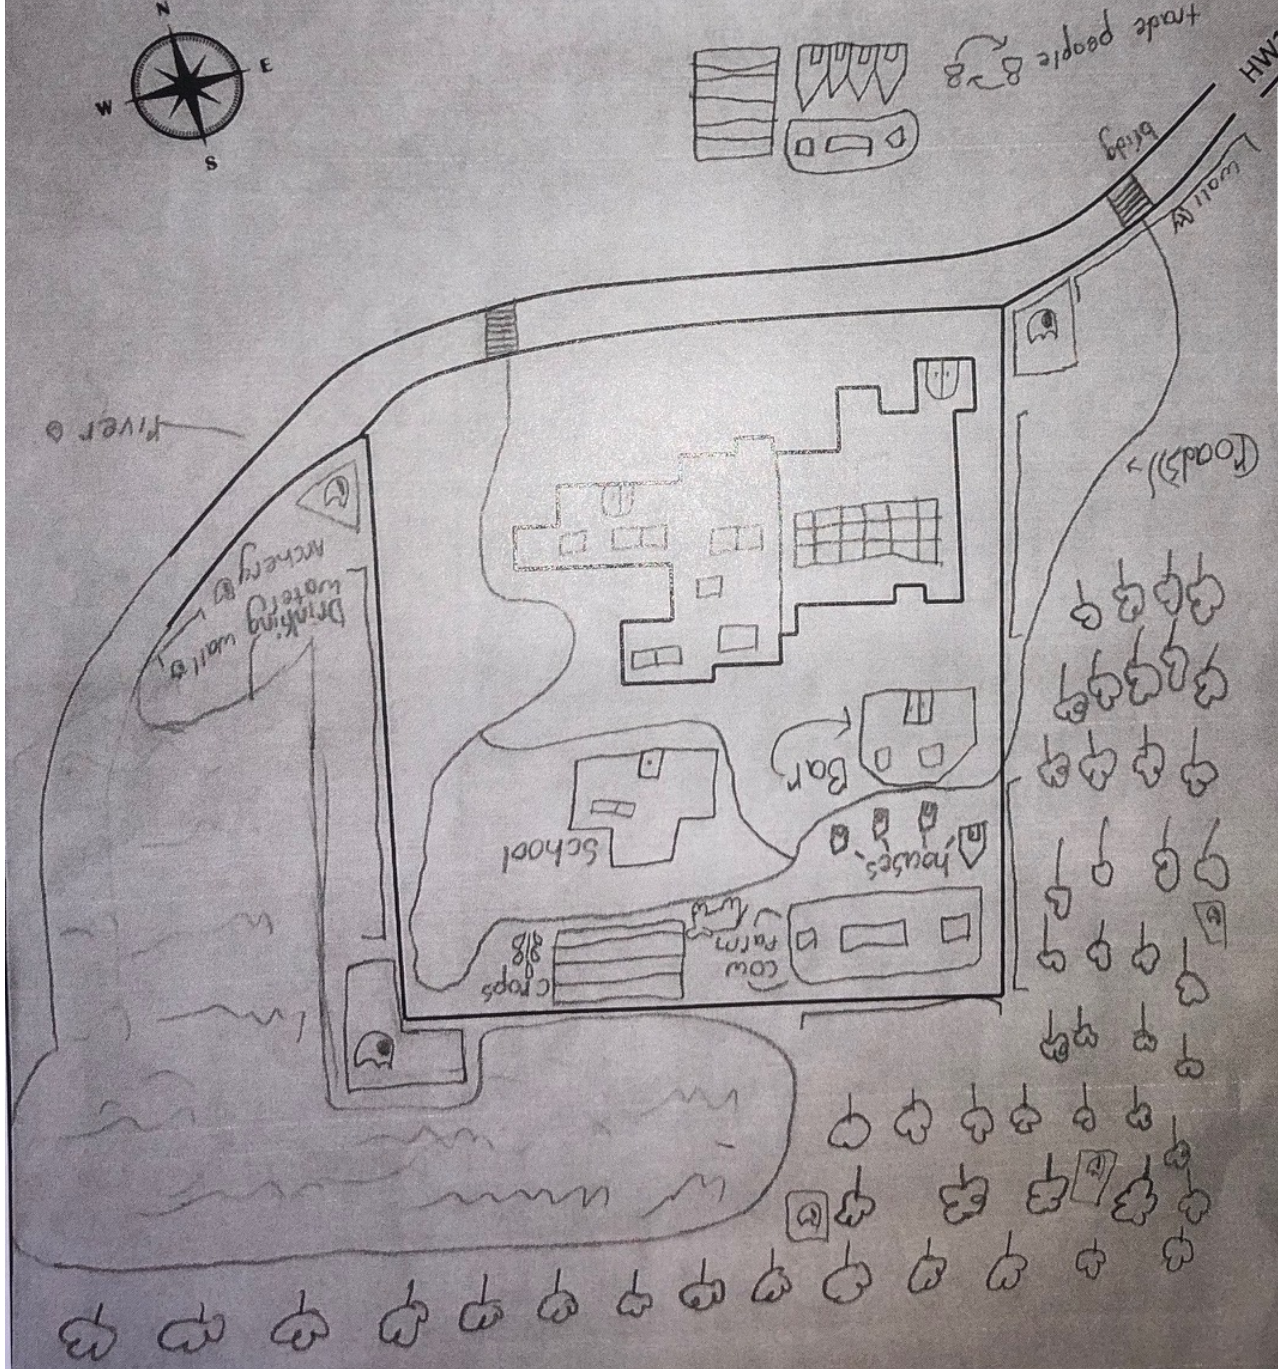 N
E
W
S
trade people
bridg
wall
river
(roads)
Archery
Drinking
watery
wall
Bar
School
houses
cow
farm
crops